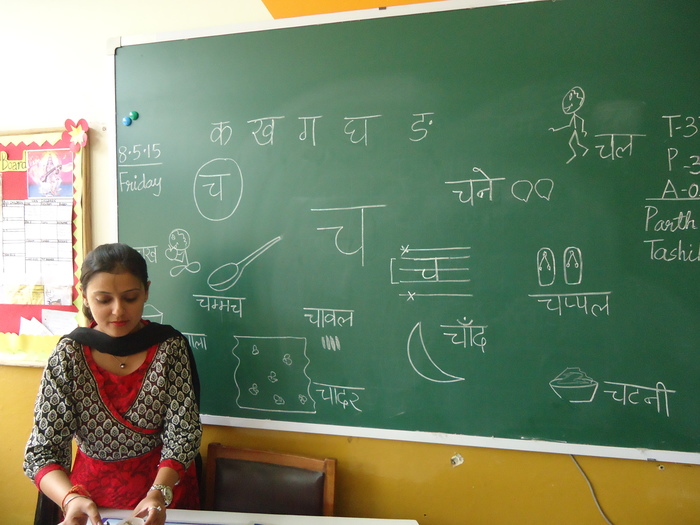 Board
8.5.15
Friday
क ख ग घ ङ
च
चल
चने
च
च
चम्मच
चावल
चाँद
चप्पल
चादर
चटनी
T-3
P-3
A-0
Parth
Tashi